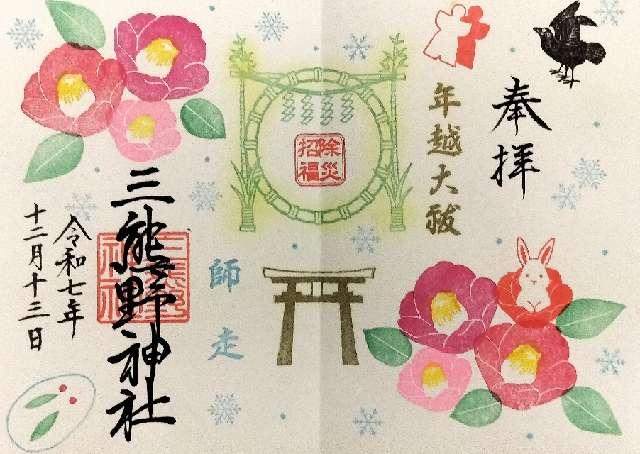 奉拝
年越大祓
除災
招福
師走
三熊野神社
令和七年
十二月十三日